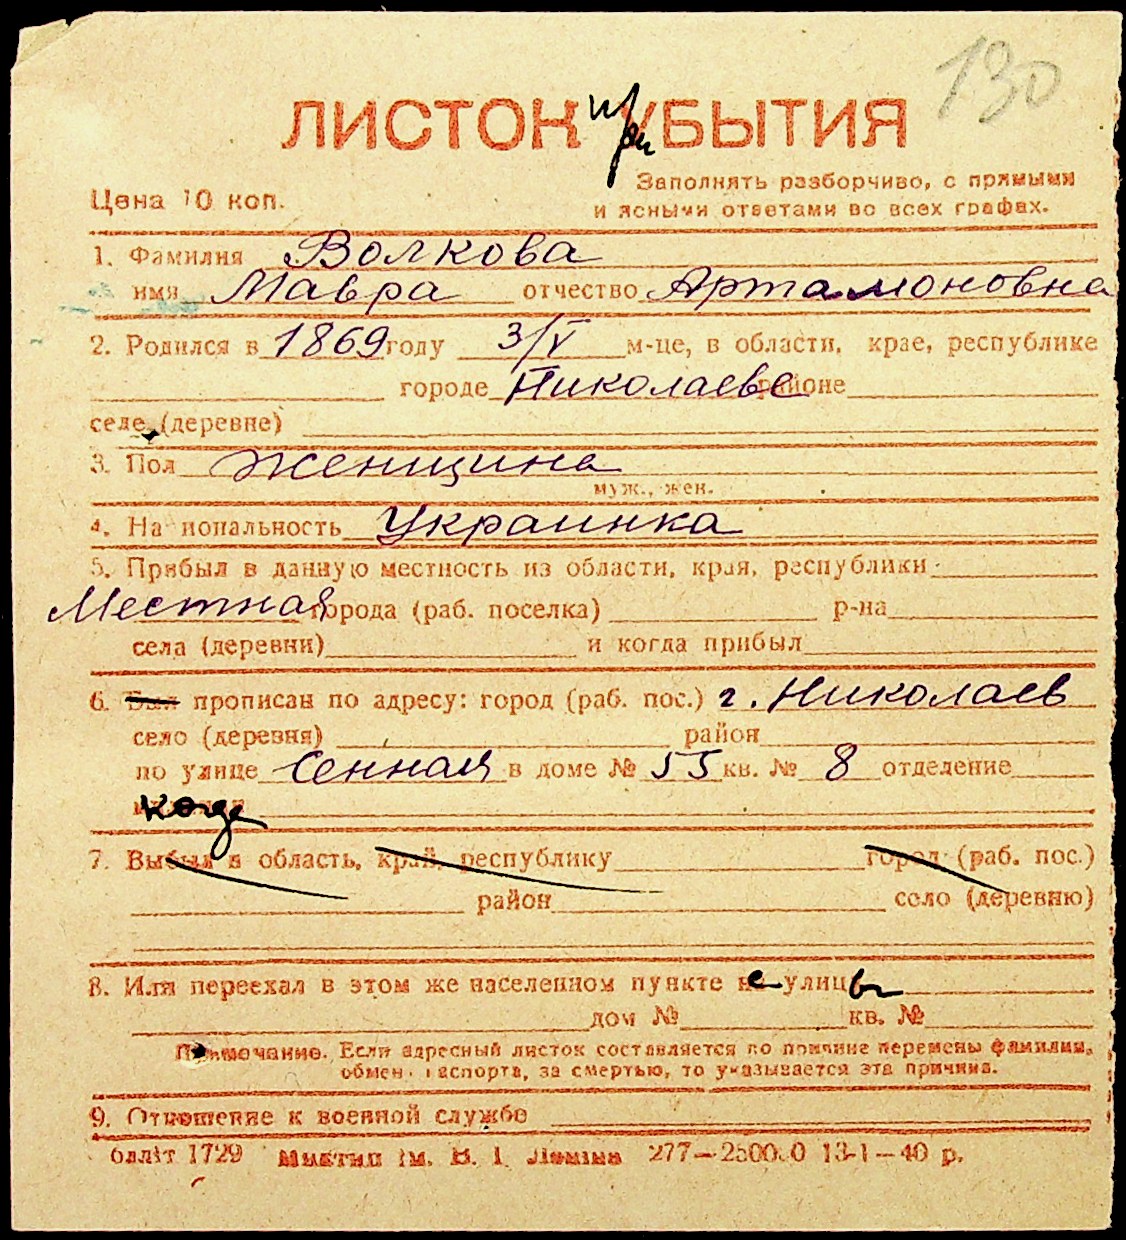 130
ЛИСТОК при УБЫТИЯ
Цена 10 коп.
Заполнять разборчиво, с прямыми
и ясными ответами во всех графах.
1. Фамилия Волкова
имя Мавра отчество Артамоновна
2. Родился в 1869 году 3/V м-це, в области, крае, республике
городе Николаеве районе
селе (деревне)
3. Пол женщина
муж., жен.
4. Национальность Украинка
5. Прибыл в данную местность из области, края, республики
Местная города (раб. поселка) р-на
села (деревни) и когда прибыл
6. Был прописан по адресу: город (раб. пос.) г. Николаев
село (деревня) район
по улице Сенная в доме № 55 кв. № 8 отделение
когда
7. Выбыл в область, край, республику город (раб. пос.)
район село (деревню)
8. Или переехал в этом же населенном пункте с улицы
дом № кв. №
Примечание. Если адресный листок составляется по причине перемены фамилии,
обмен паспорта, за смертью, то указывается эта причина.
9. Отношение к военной службе
1729 ім. В. І. Леніна 277— 13-1—40 р.